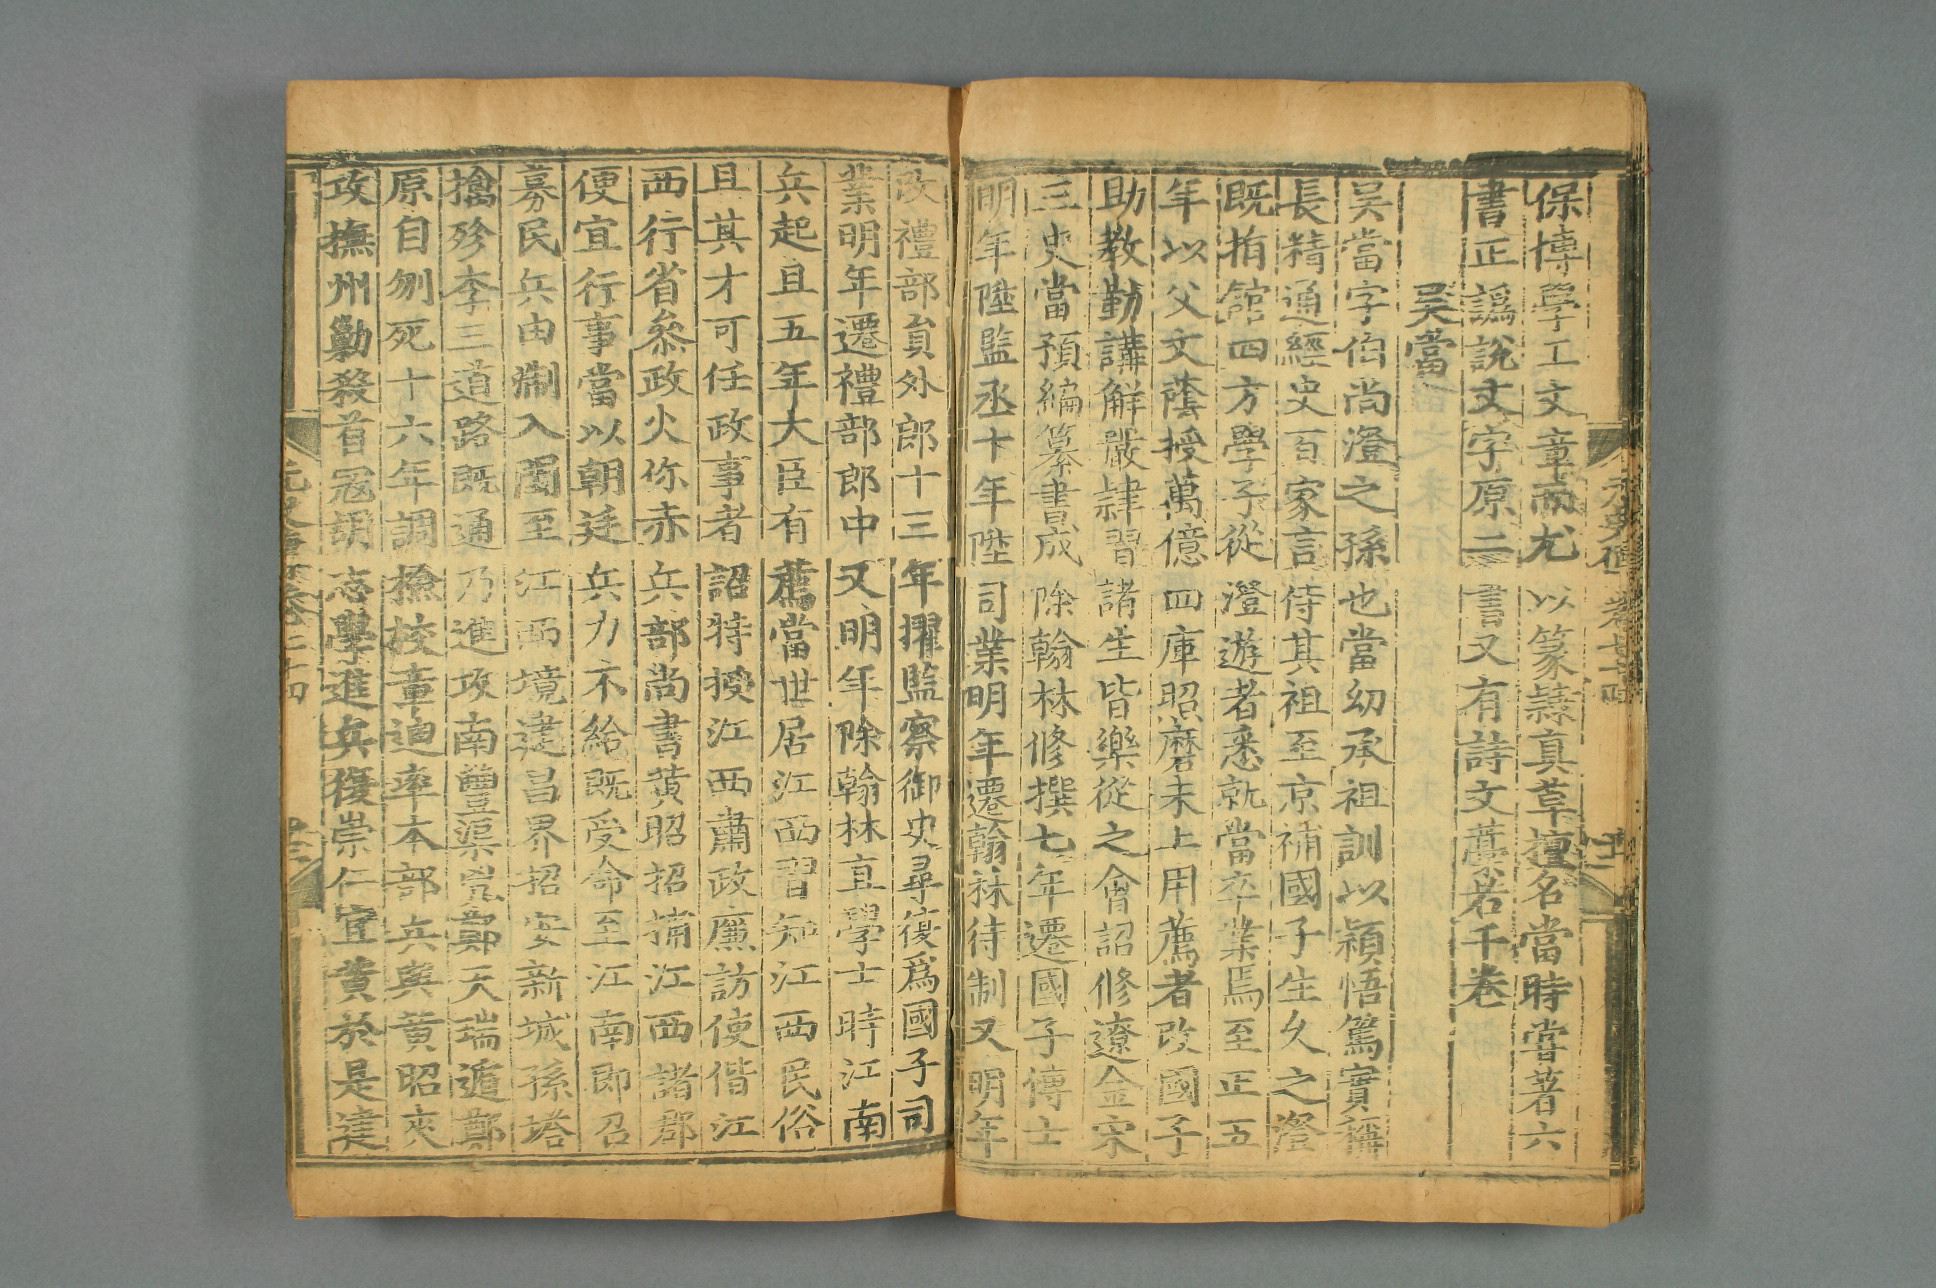 保博學工文章而尤以篆隸真草擅名當時嘗著六
書正譌說文字原二書又有詩文藁若干卷
吳當
吳當字伯尚澄之孫也當幼承祖訓以穎悟篤實稱
長精通經史百家言侍其祖至京補國子生久之澄
既捐館四方學子從澄遊者悉就當卒業焉至正五
年以父文蔭授萬億四庫照磨未上用薦者改國子
助教勤講解嚴肄習諸生皆樂從之會詔修遼金宋
三史當預編纂書成除翰林修撰七年遷國子博士
明年陞監丞十年陞司業明年遷翰林待制又明年
改禮部員外郎十三年擢監察御史尋復爲國子司
業明年遷禮部郎中又明年除翰林直學士時江南
兵起且五年大臣有薦當世居江西習知江西民俗
且其才可任政事者詔特授江西肅政廉訪使偕江
西行省叅政火你赤兵部尚書黃昭招捕江西諸郡
便宜行事當以朝廷兵力不給既受命至江南即召
募民兵由淛入閩至江西境建昌界招安新城孫塔
擒殄李三道路既通乃進攻南豐渠兇鄭天瑞遁鄭
原自刎死十六年調撿校章迪率本部兵與黃昭夾
攻撫州勦殺首寇胡志學進兵復崇仁宜黃於是建